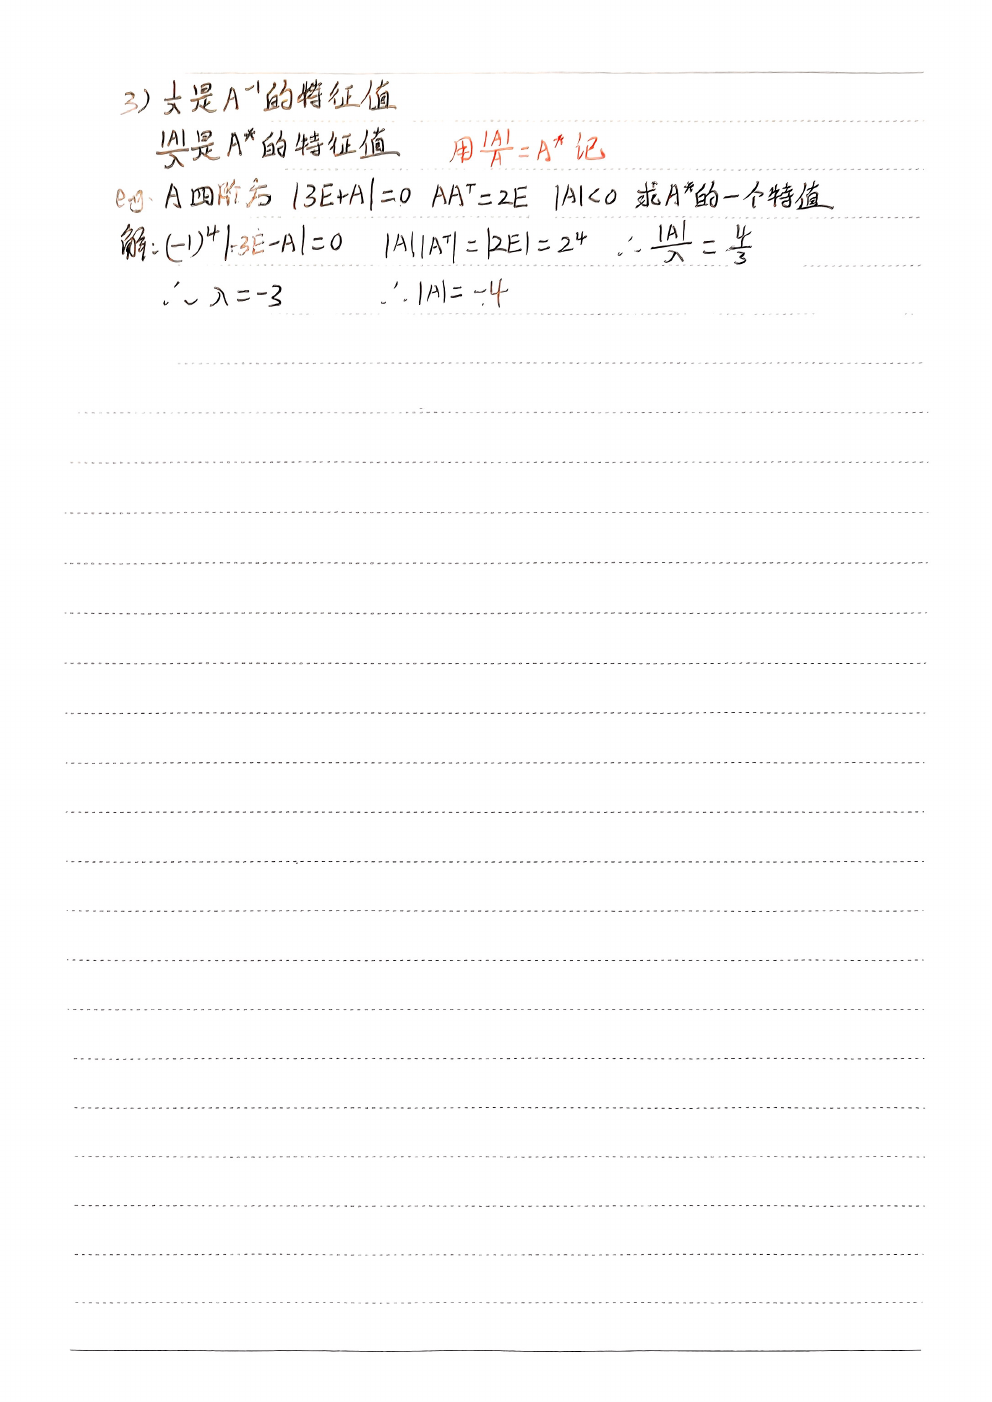 3) 1/λ 是 A⁻¹ 的特征值
|A|/λ 是 A* 的特征值 用 |A|/A = A* 记
eg. A 四阶方 |3E+A|=0 AAᵀ=2E |A|<0 求A*的一个特值
解: (-1)⁴|-3E-A|=0 |A||Aᵀ|=|2E|=2⁴ ∴ |A|/λ = 4/3
∴ λ=-3 ∴ |A|=-4